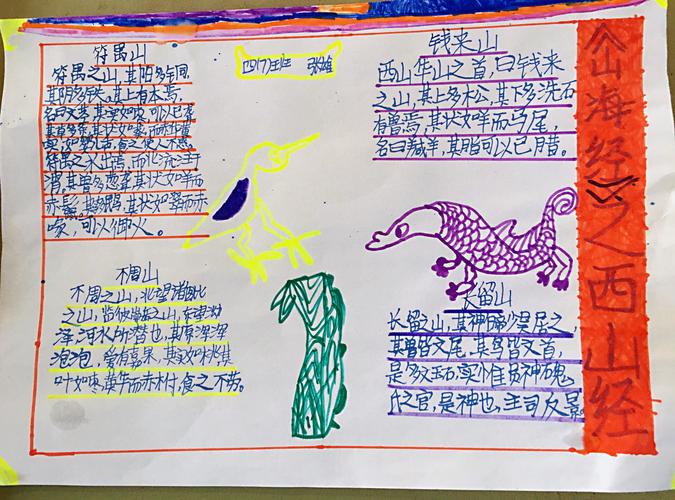 《山海经》之西山经
四(7)班
符禺山
符禺之山，其阳多铜，
其阴多铁。其上有木焉，
名曰文茎，其实如枣，可以已聋
其草多条，其状如葵，而赤华黄
实，如婴儿舌，食之使人不惑。
符禺之水出焉，而北流注于
渭，其兽多葱聋，其状如羊而
赤鬣，其鸟多鴖，其状如翠而赤
喙，可以御火。
钱来山
西山华山之首，曰钱来
之山，其上多松，其下多洗石
有兽焉，其状如羊而马尾，
名曰羬羊，其脂可以已腊。
不周山
不周之山，北望诸毗
之山，临彼岳崇之山，东望泑
泽，河水所潜也，其原浑浑
泡泡，爰有嘉果，其实如桃其
叶如枣，黄华而赤柎，食之不劳。
长留山
长留之山，其神白帝少昊居之，
其兽皆文尾，其鸟皆文首，
是多文玉石，实惟员神磈
氏之宫，是神也，主司反景。